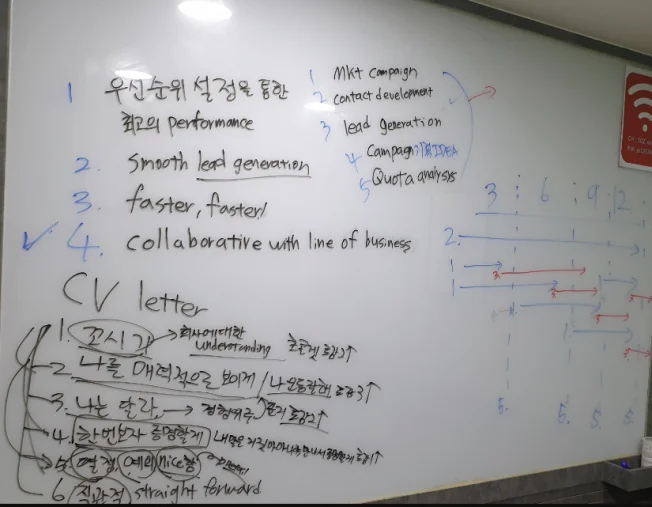 1 우선순위 설정을 통한
최고의 performance
2. smooth lead generation
3. faster, faster!
4. collaborative with line of business
1 Mkt campaign
2 contact development
3 lead generation
4 Campaign IDEA
5 Quota analysis
3 6 9 12
2.
1
1
1
1
5. 5. 5. 5
CV letter
1. 꼬시기 → 회사에 대한 understanding
2. 나를 매력적으로 보이게
3. 나는 달라,
4. 한번보자 증명할게
5. 열정 예의 nice함
6. 직관적 straight forward